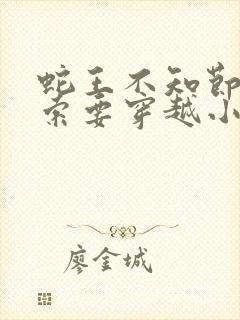 蛇王不知节
索要穿越小
廖金城